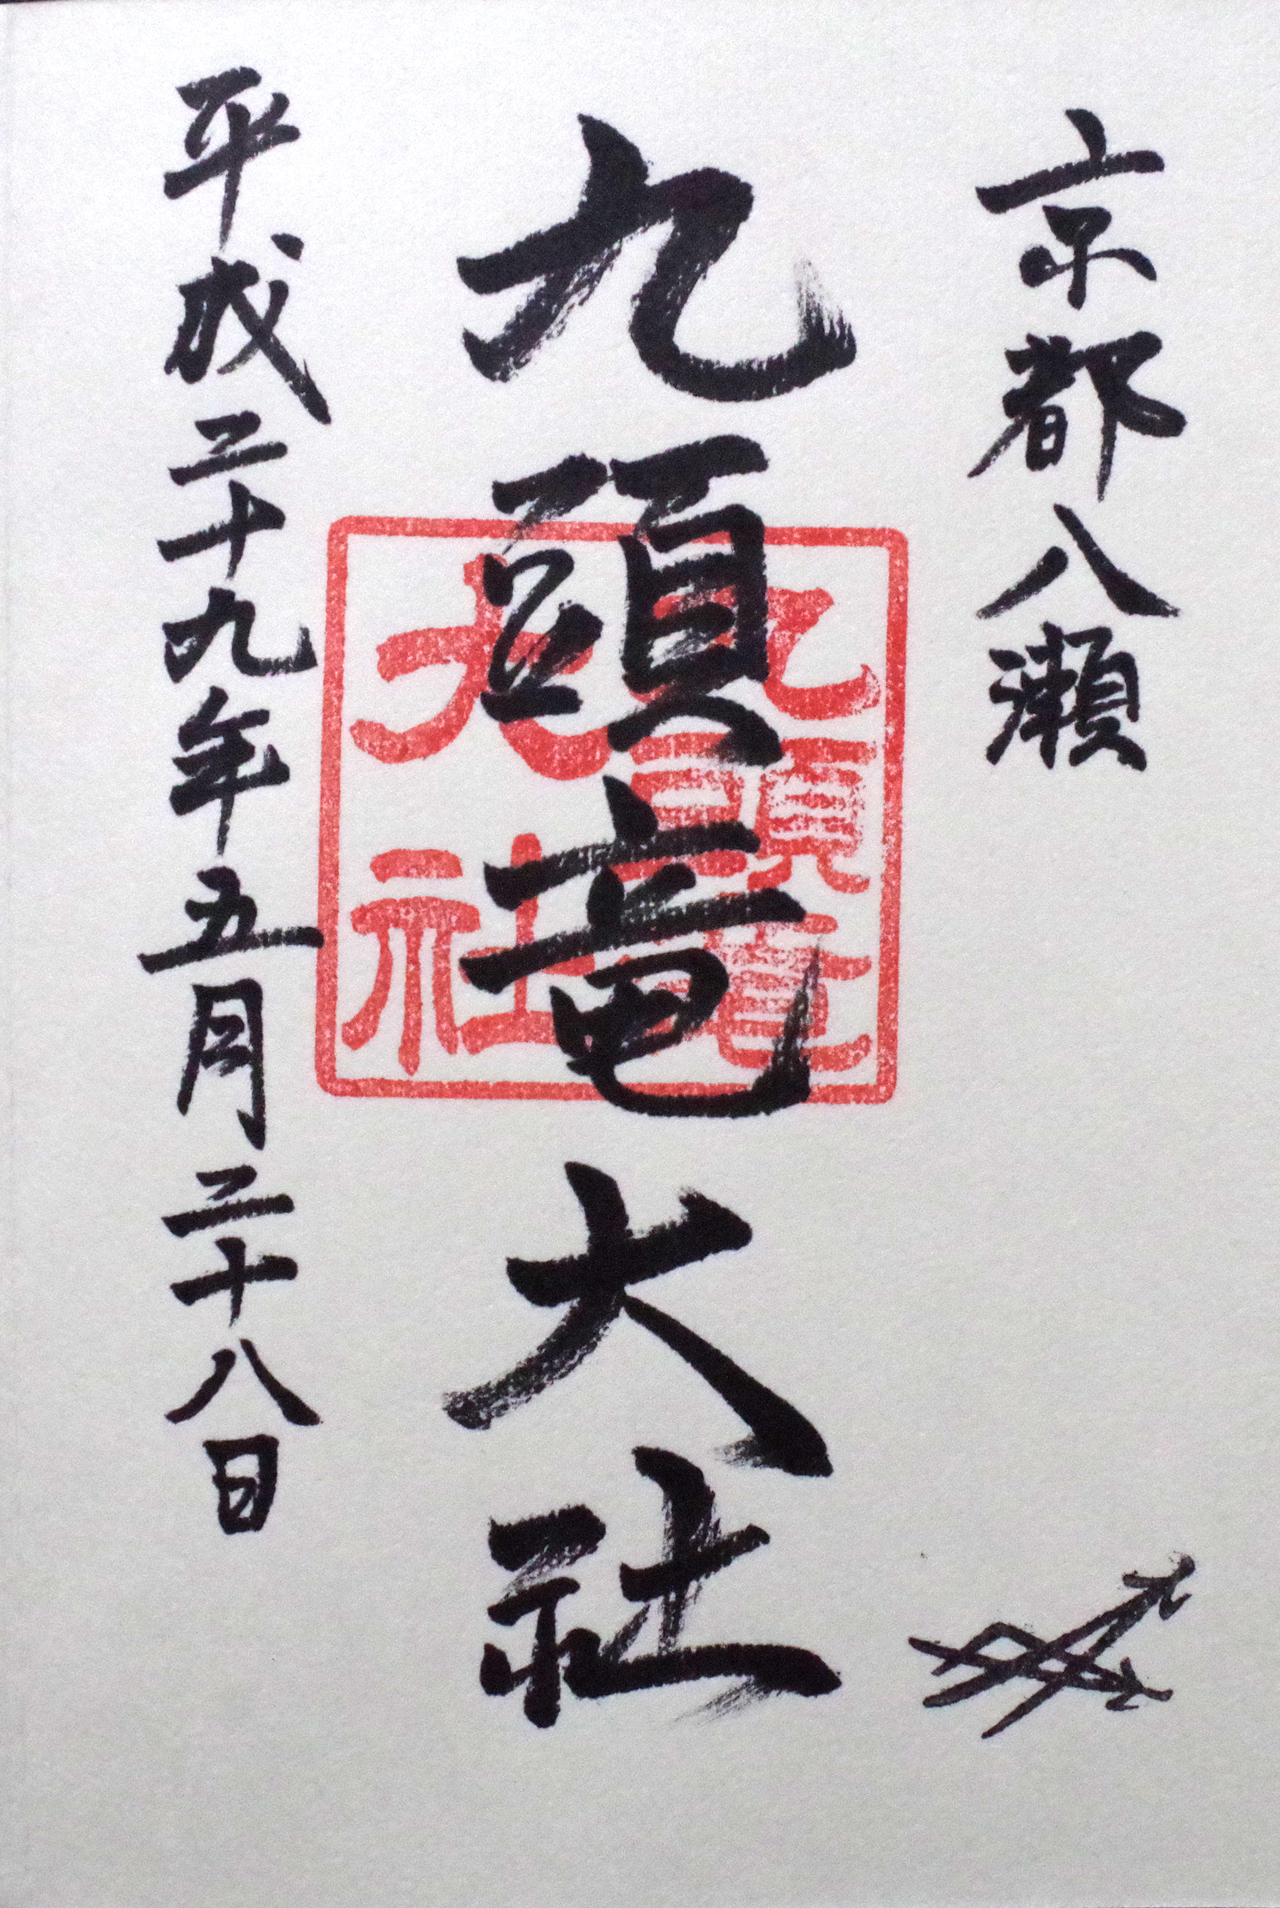 京都八瀬
九頭竜大社
九頭竜
大社
平成二十九年五月二十八日